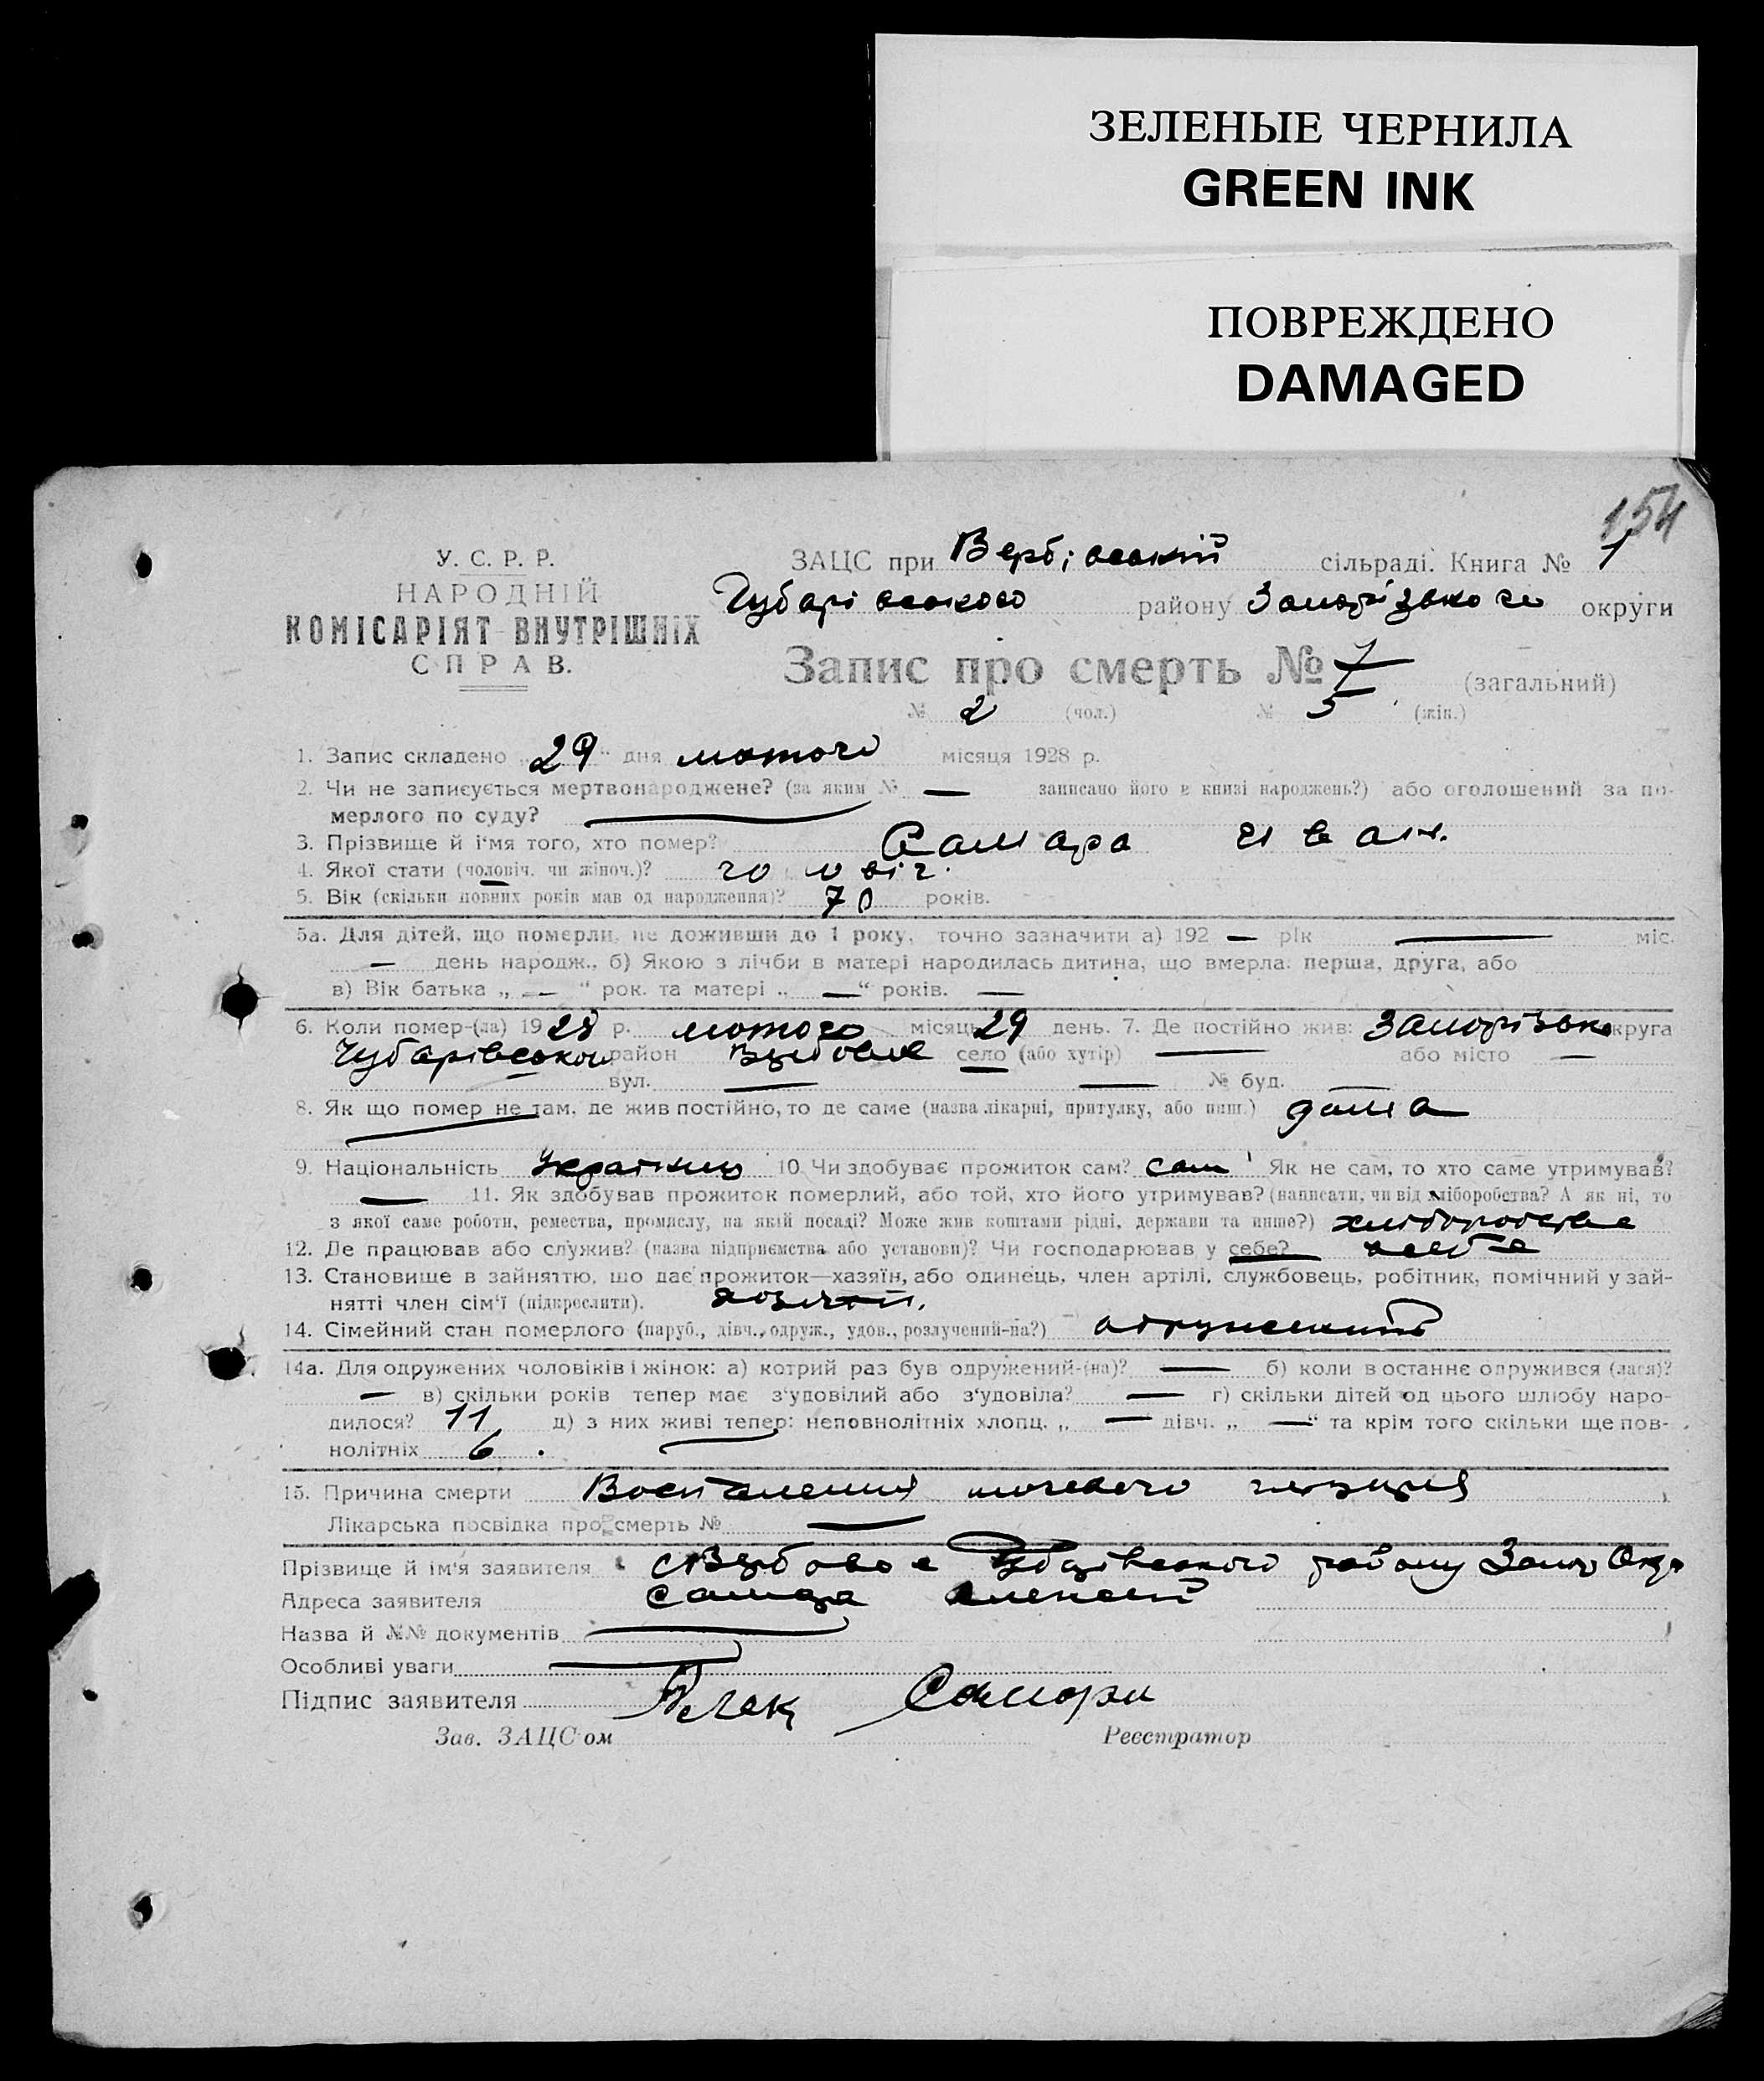 ЗЕЛЕНЫЕ ЧЕРНИЛА
GREEN INK
ПОВРЕЖДЕНО
DAMAGED
154
У. С. Р. Р.
НАРОДНІЙ
КОМІСАРІЯТ ВНУТРІШНІХ
СПРАВ.
ЗАЦС при Вербівській сільраді. Книга № 1
Чубарівського району Запорізького округи
Запис про смерть № 7 (загальний)
№ 2 (чол.) № 5 (жін.)
1. Запис складено „29“ дня лютого місяця 1928 р.
2. Чи не записується мертвонароджене? (за яким № — записано його в книзі народжень?) або оголошений за по-
мерлого по суду? —
3. Прізвище й ім'я того, хто помер? Самара Иван.
4. Якої стати (чоловіч. чи жіноч.)? чоловіч.
5. Вік (скільки повних років мав од народження)? 70 років.
5а. Для дітей, що померли, не доживши до 1 року, точно зазначити а) 192 — рік — міс.
— день народж., б) Якою з лічби в матері народилась дитина, що вмерла: перша, друга, або
в) Вік батька „ — “ рок. та матері „ — “ років. —
6. Коли помер-(ла) 1928 р. лютого місяць 29 день. 7. Де постійно жив: Запорізька округа
Чубарівськой район Вербове село (або хутір) — або місто —
вул. — — № буд. —
8. Як що помер не там, де жив постійно, то де саме (назва лікарні, притулку, або инш.) дома
9. Національність Українец 10. Чи здобуває прожиток сам? сам Як не сам, то хто саме утримував?
— 11. Як здобував прожиток померлий, або той, хто його утримував? (написати, чи від хліборобства? А як ні, то
з якої саме роботи, ремества, промислу, на якій посаді? Може жив коштами рідні, держави та инше?) хліборобства
12. Де працював або служив? (назва підприємства або установи)? Чи господарював у себе?
13. Становище в зайняттю, що дає прожиток—хазяїн, або одинець, член артілі, службовець, робітник, помічний у зай-
нятті член сім'ї (підкреслити). хозяїн.
14. Сімейний стан померлого (паруб., дівч., одруж., удов., розлучений-на?) одружений
14а. Для одружених чоловіків і жінок: а) котрий раз був одружений-(на)? — б) коли в останнє одружився (лася)?
— в) скільки років тепер має з'удовілий або з'удовіла? — г) скільки дітей од цього шлюбу наро-
дилося? 11 д) з них живі тепер: неповнолітніх хлопц. „ — дівч. „ —“ та крім того скільки ще пов-
нолітніх 6.
15. Причина смерти Воспаления мочевого пузиря
Лікарська посвідка про смерть № —
Прізвище й ім'я заявителя с Вербове Чубарівського району Запор Окр
Адреса заявителя Самара Алексей
Назва й №№ документів —
Особливі уваги —
Підпис заявителя Самара
Зав. ЗАЦС'ом Реєстратор